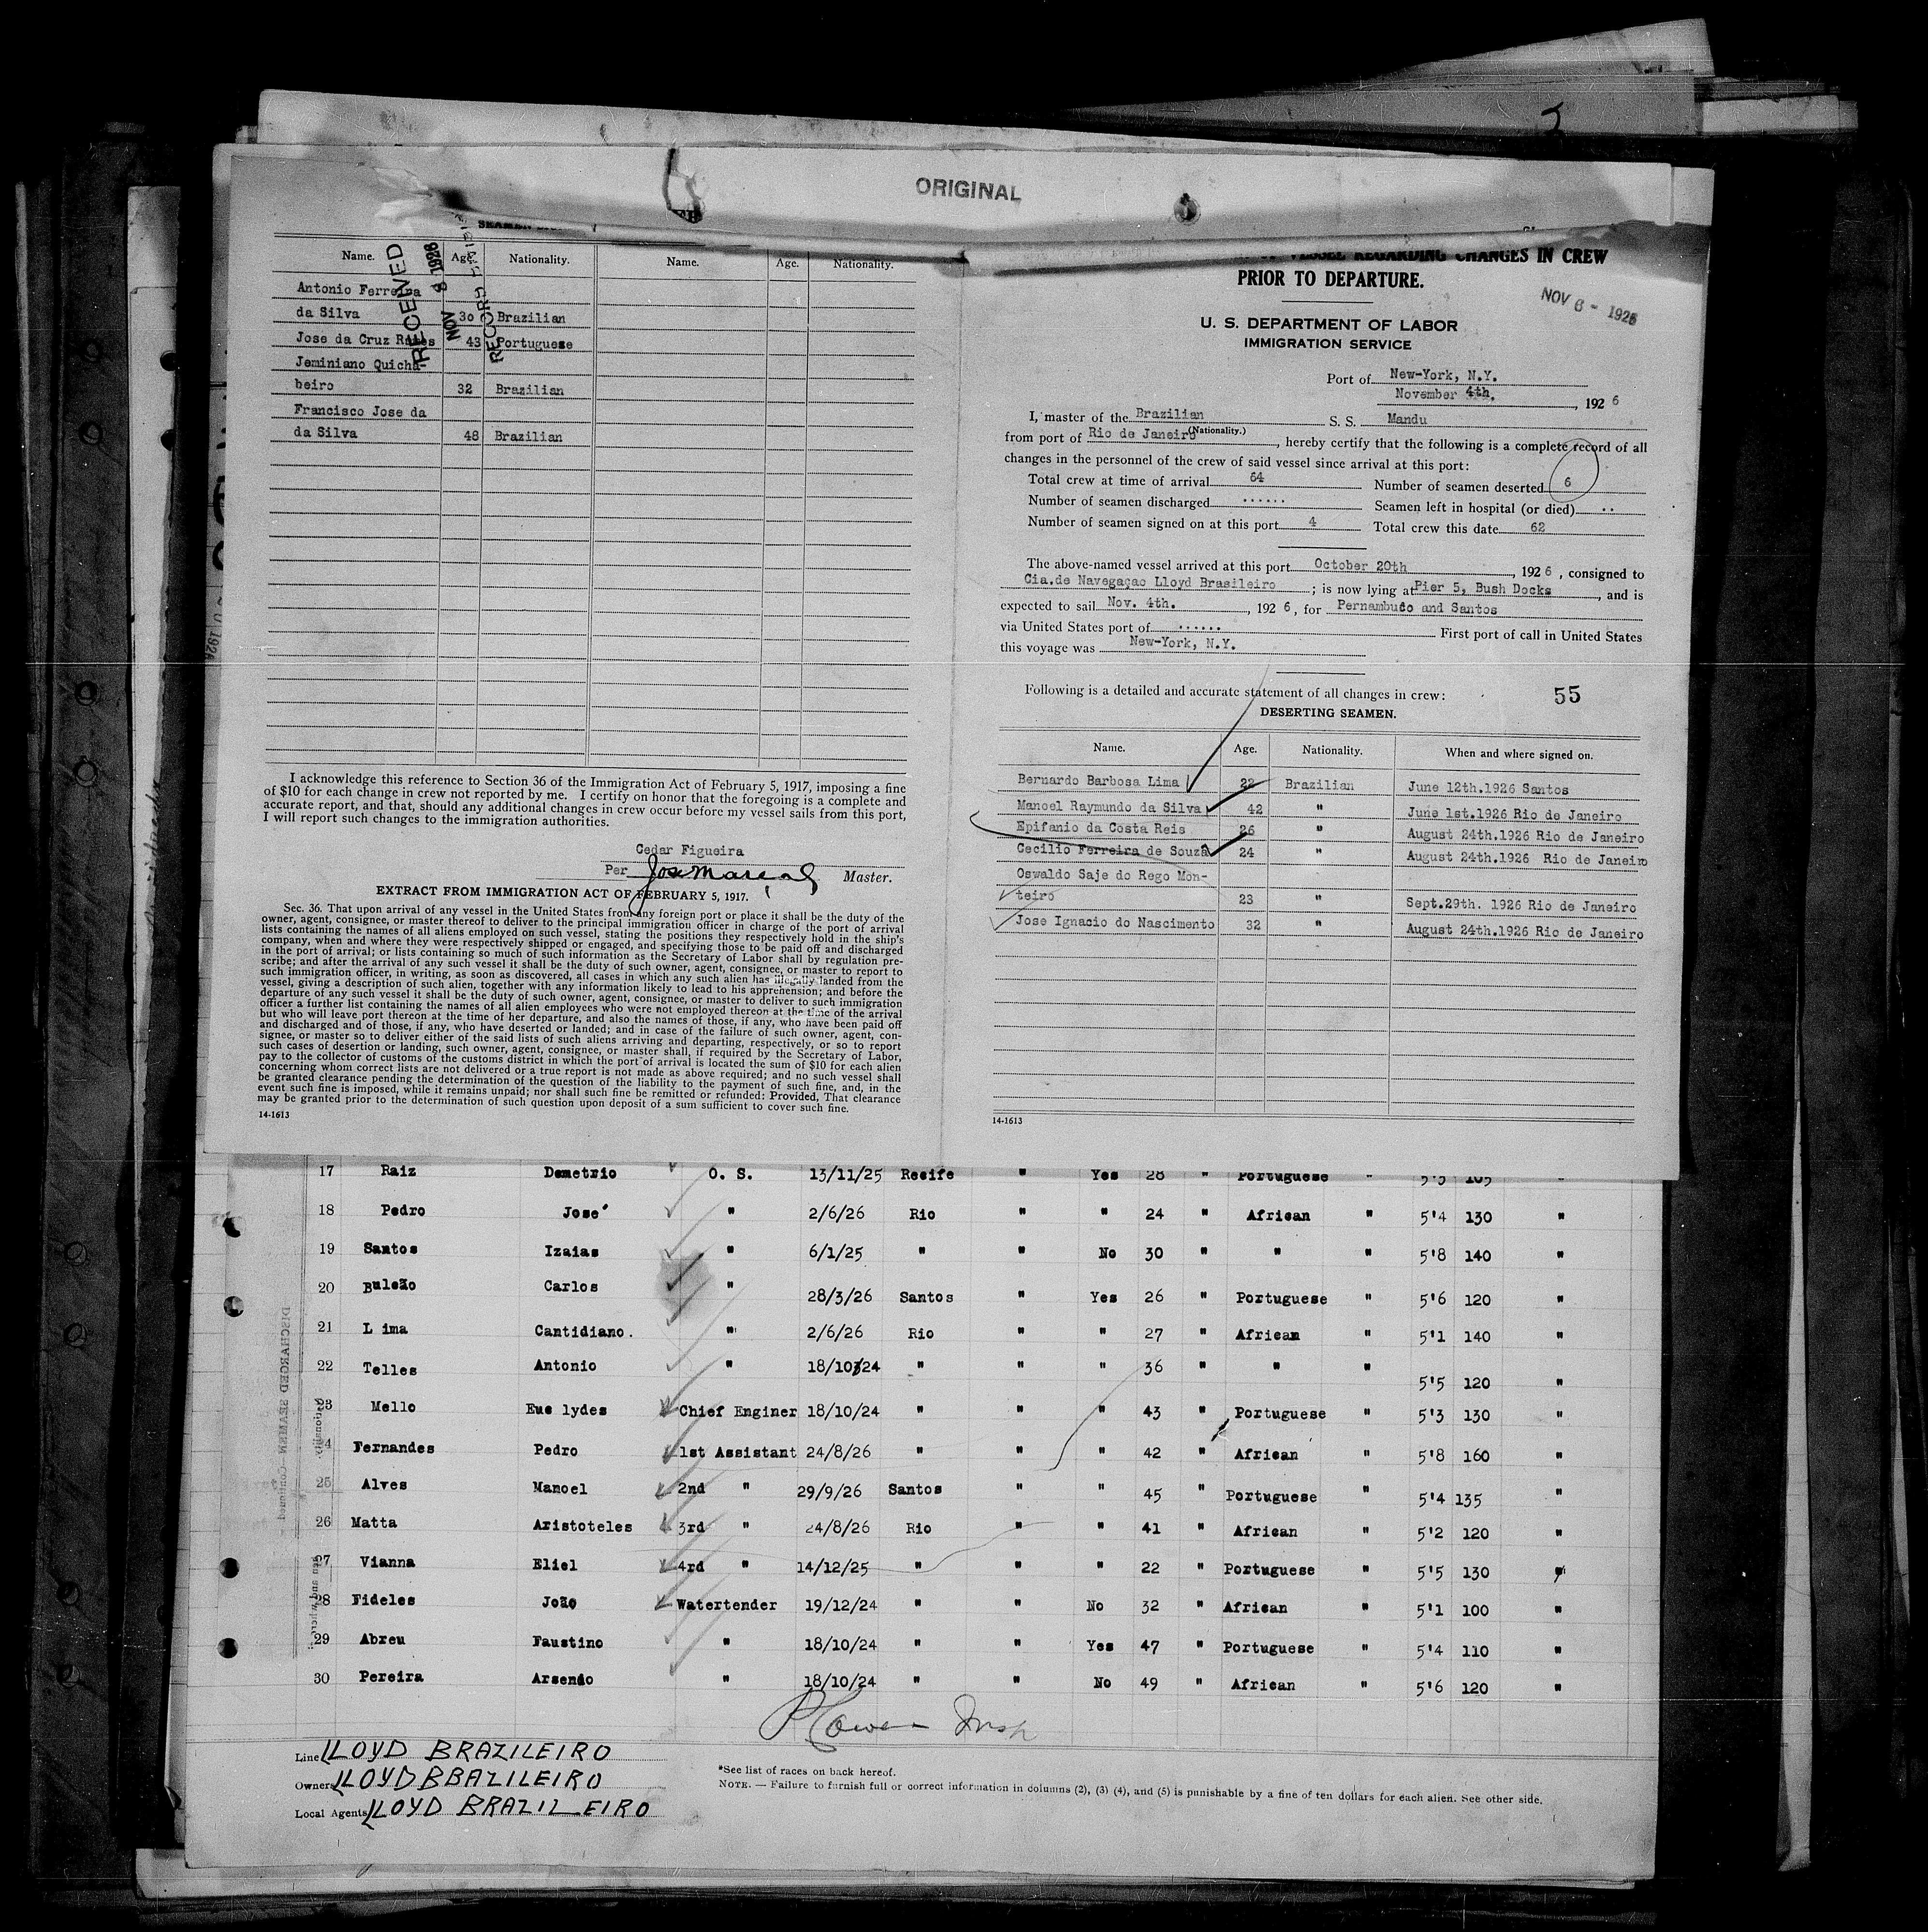 ORIGINAL
Name. Age. Nationality. Name. Age. Nationality.
RECEIVED
NOV 8 1926
Antonio Ferreira
da Silva 30 Brazilian
Jose da Cruz 43 Portuguese
Jeminiano Quicha-
beiro 32 Brazilian
Francisco Jose da
da Silva 48 Brazilian
I acknowledge this reference to Section 36 of the Immigration Act of February 5, 1917, imposing a fine
of $10 for each change in crew not reported by me. I certify on honor that the foregoing is a complete and
accurate report, and that, should any additional changes in crew occur before my vessel sails from this port,
I will report such changes to the immigration authorities.
Cedar Figueira
Per Master.
EXTRACT FROM IMMIGRATION ACT OF FEBRUARY 5, 1917.
Sec. 36. That upon arrival of any vessel in the United States from any foreign port or place it shall be the duty of the
owner, agent, consignee, or master thereof to deliver to the principal immigration officer in charge of the port of arrival
lists containing the names of all aliens employed on such vessel, stating the positions they respectively hold in the ship's
company, when and where they were respectively shipped or engaged, and specifying those to be paid off and discharged
in the port of arrival; or lists containing so much of such information as the Secretary of Labor shall by regulation pre-
scribe; and after the arrival of any such vessel it shall be the duty of such owner, agent, consignee, or master to report to
such immigration officer, in writing, as soon as discovered, all cases in which any such alien has illegally landed from the
vessel, giving a description of such alien, together with any information likely to lead to his apprehension; and before the
departure of any such vessel it shall be the duty of such owner, agent, consignee, or master to deliver to such immigration
officer a further list containing the names of all alien employees who were not employed thereon at the time of the arrival
but who will leave port thereon at the time of her departure, and also the names of those, if any, who have been paid off
and discharged and of those, if any, who have deserted or landed; and in case of the failure of such owner, agent, con-
signee, or master so to deliver either of the said lists of such aliens arriving and departing, respectively, or so to report
such cases of desertion or landing, such owner, agent, consignee, or master shall, if required by the Secretary of Labor,
pay to the collector of customs of the customs district in which the port of arrival is located the sum of $10 for each alien
concerning whom correct lists are not delivered or a true report is not made as above required; and no such vessel shall
be granted clearance pending the determination of the question of the liability to the payment of such fine, and, in the
event such fine is imposed, while it remains unpaid; nor shall such fine be remitted or refunded: Provided, That clearance
may be granted prior to the determination of such question upon deposit of a sum sufficient to cover such fine.
14-1613
VESSEL REGARDING CHANGES IN CREW
PRIOR TO DEPARTURE.
NOV 6 - 1926
U. S. DEPARTMENT OF LABOR
IMMIGRATION SERVICE
Port of New-York, N.Y.
November 4th, , 1926
I, master of the Brazilian S. S. Mandu
(Nationality.)
from port of Rio de Janeiro , hereby certify that the following is a complete record of all
changes in the personnel of the crew of said vessel since arrival at this port:
Total crew at time of arrival 64 Number of seamen deserted 6
Number of seamen discharged ...... Seamen left in hospital (or died) ..
Number of seamen signed on at this port 4 Total crew this date 62
The above-named vessel arrived at this port October 20th , 1926 , consigned to
Cia.de Navegaçao Lloyd Brasileiro ; is now lying at Pier 5, Bush Docks , and is
expected to sail Nov. 4th. , 1926, for Pernambuco and Santos
via United States port of ...... First port of call in United States
this voyage was New-York, N.Y.
Following is a detailed and accurate statement of all changes in crew: 55
DESERTING SEAMEN.
Name. Age. Nationality. When and where signed on.
Bernardo Barbosa Lima 22 Brazilian June 12th.1926 Santos
Manoel Raymundo da Silva 42 " June 1st.1926 Rio de Janeiro
Epifanio da Costa Reis 26 " August 24th.1926 Rio de Janeiro
Cecilio Ferreira de Souza 24 " August 24th.1926 Rio de Janeiro
Oswaldo Saje do Rego Mon-
teiro 23 " Sept.29th. 1926 Rio de Janeiro
Jose Ignacio do Nascimento 32 " August 24th.1926 Rio de Janeiro
14-1613
17 Raiz Demetrio O. S. 13/11/25 Recife " Yes 28 " Portuguese " 5'5 105 "
18 Pedro Jose' " 2/6/26 Rio " " 24 " African " 5'4 130 "
19 Santos Izaias " 6/1/25 " " No 30 " " " 5'8 140 "
20 Buleão Carlos " 28/3/26 Santos " Yes 26 " Portuguese " 5'6 120 "
21 L ima Cantidiano. " 2/6/26 Rio " " 27 " African " 5'1 140 "
22 Telles Antonio " 18/10/24 " " " 36 " " " 5'5 120 "
23 Mello Euc lydes Chief Enginer 18/10/24 " " " 43 " Portuguese " 5'3 130 "
24 Fernandes Pedro 1st Assistant 24/8/26 " " " 42 " African " 5'8 160 "
25 Alves Manoel 2nd " 29/9/26 Santos " " 45 " Portuguese " 5'4 135 "
26 Matta Aristoteles 3rd " 24/8/26 Rio " " 41 " African " 5'2 120 "
27 Vianna Eliel 4rd " 14/12/25 " " " 22 " Portuguese " 5'5 130 "
28 Fideles João Watertender 19/12/24 " " No 32 " African " 5'1 100 "
29 Abreu Faustino " 18/10/24 " " Yes 47 " Portuguese " 5'4 110 "
30 Pereira Arsenio " 18/10/24 " " No 49 " African " 5'6 120 "
Line LLOYD BRAZILEIRO
Owners LLOYD BBAZILEIRO
Local Agents LLOYD BRAZILEIRO
*See list of races on back hereof.
NOTE. — Failure to furnish full or correct information in columns (2), (3) (4), and (5) is punishable by a fine of ten dollars for each alien. See other side.